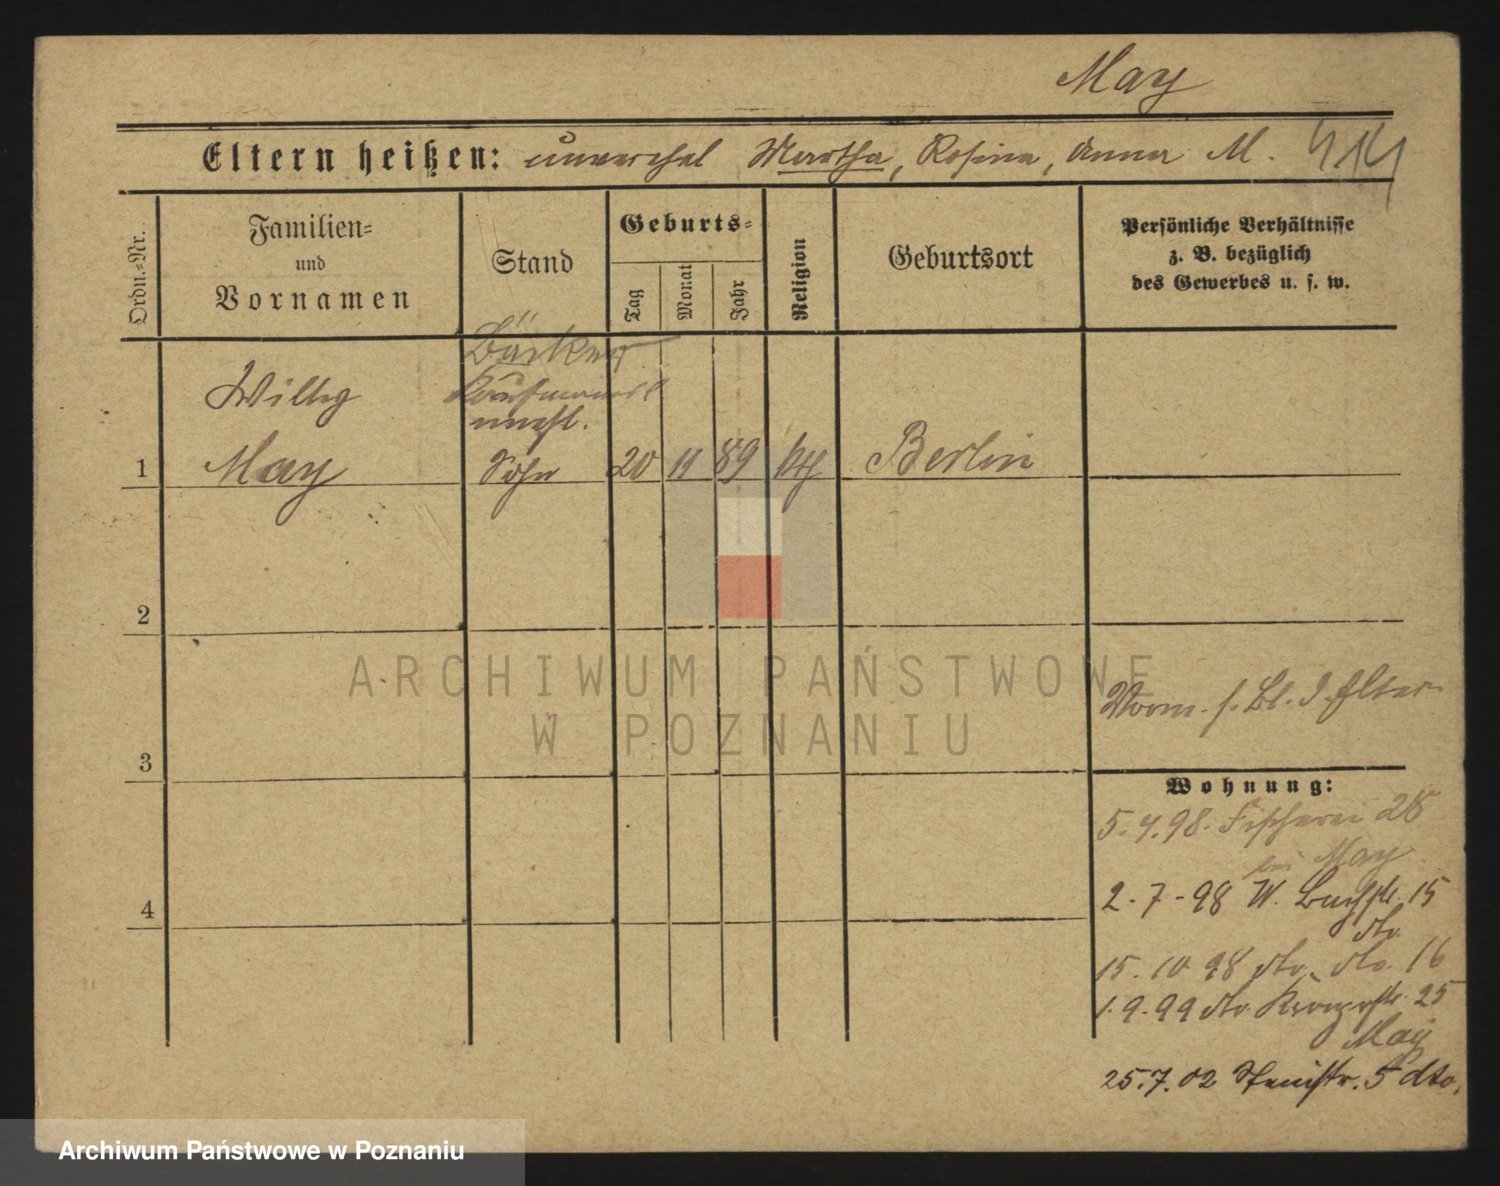 May
Eltern heißen: unverehel Martha, Rosina, Anna M. 414
Ordn.-Nr.
Familien- und Vornamen
Stand
Geburts-
Tag
Monat
Jahr
Religion
Geburtsort
Persönliche Verhältnisse
z. B. bezüglich
des Gewerbes u. s. w.
Bäcker
Willy
unehl.
1 May Sohn 20 11 89 Berlin
2
3
4
Vorm. s. Bl. d. Elter
Wohnung:
5.4.98. Fischerei 28
bei May
2-7-98 W. 15
dto
15.10 98 dto. dto. 16
1.9.99 dto. 25
May
25.7.02 5 dto.
ARCHIWUM PAŃSTWOWE
W POZNANIU
Archiwum Państwowe w Poznaniu